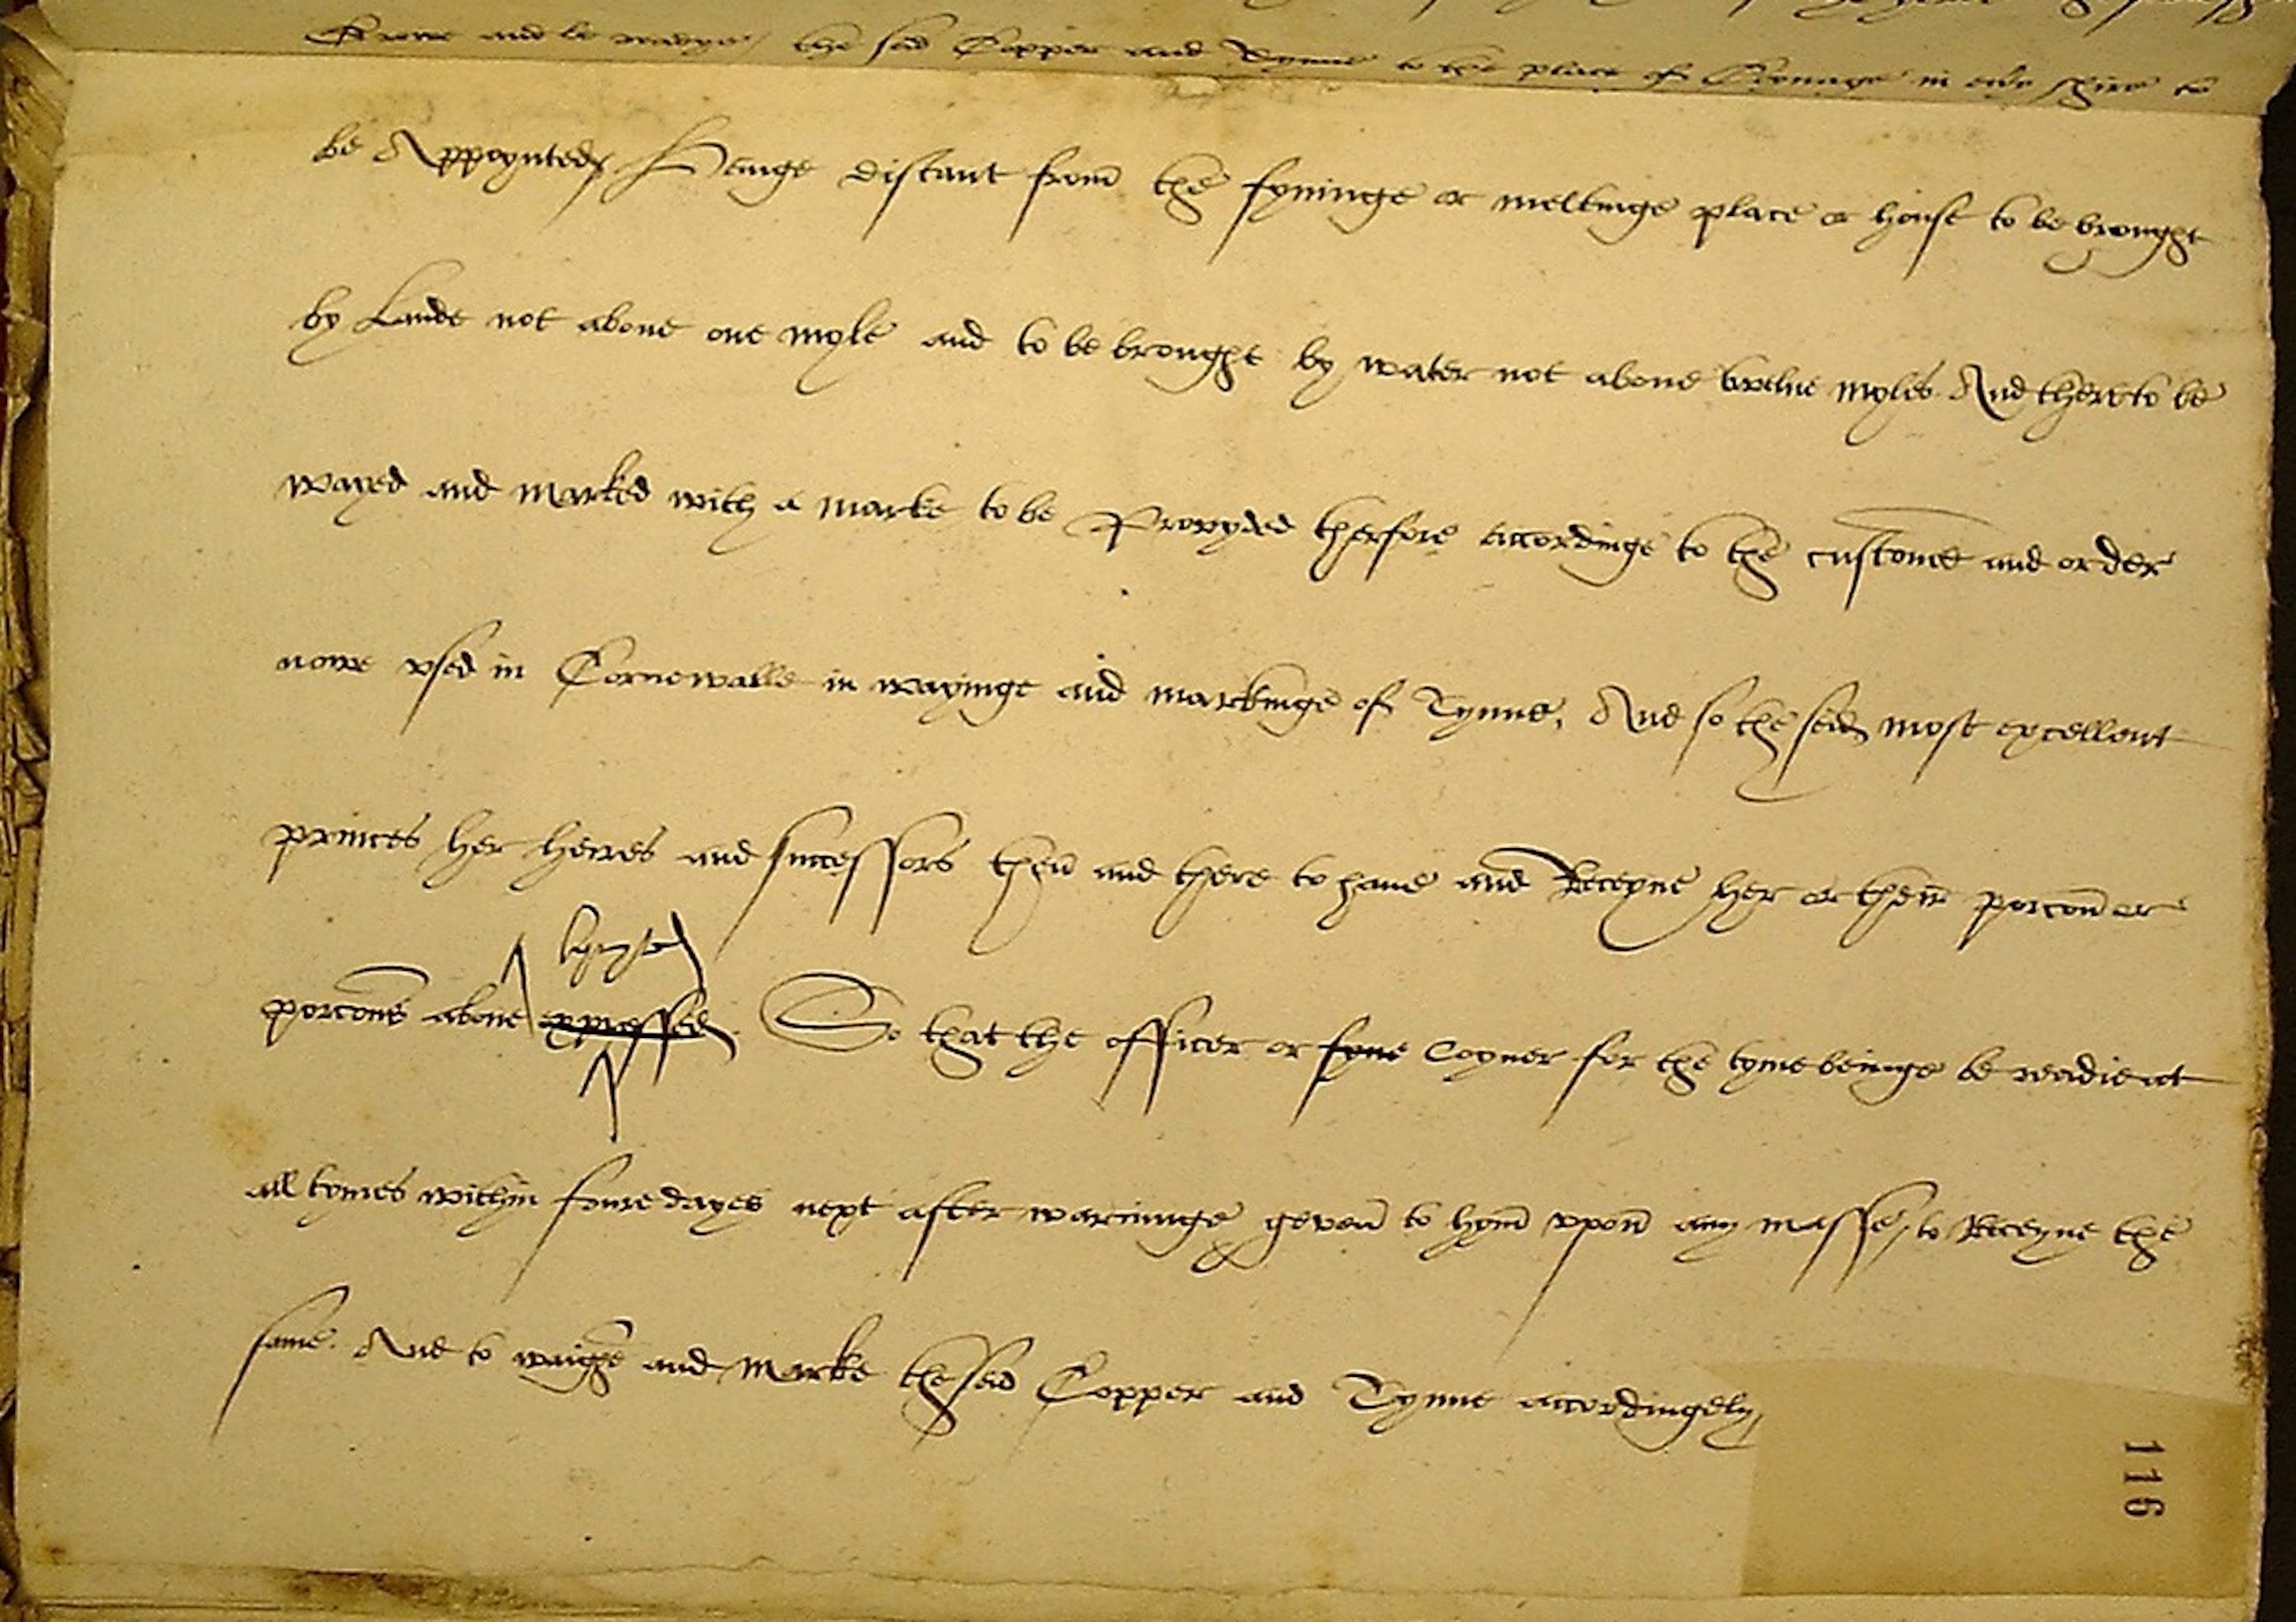 and the said Copper and Tynne to the place of Coynage in every shire to
be Appoynted, Beinge distant from the fyninge or meltinge place or house to be brought
by Lande not above one myle and to be brought by water not above twelve myles. And there to be
wayed and marked with a marke to be Provyded therfore accordinge to the custome and order
nowe vsed in Cornewalle in wayinge and markinge of Tynne, And so the seid most excellent
princes her heires and successors then and there to have and Receyve her or their porcon or
porcons above expressed. So that the officer or fyne Coyner for the tyme beinge be readie at
all tymes within foure dayes next after warninge geven to hym vpon any masse, to Receyve the
same. And to waighe and marke the seid Copper and Tynne accordingely,
116